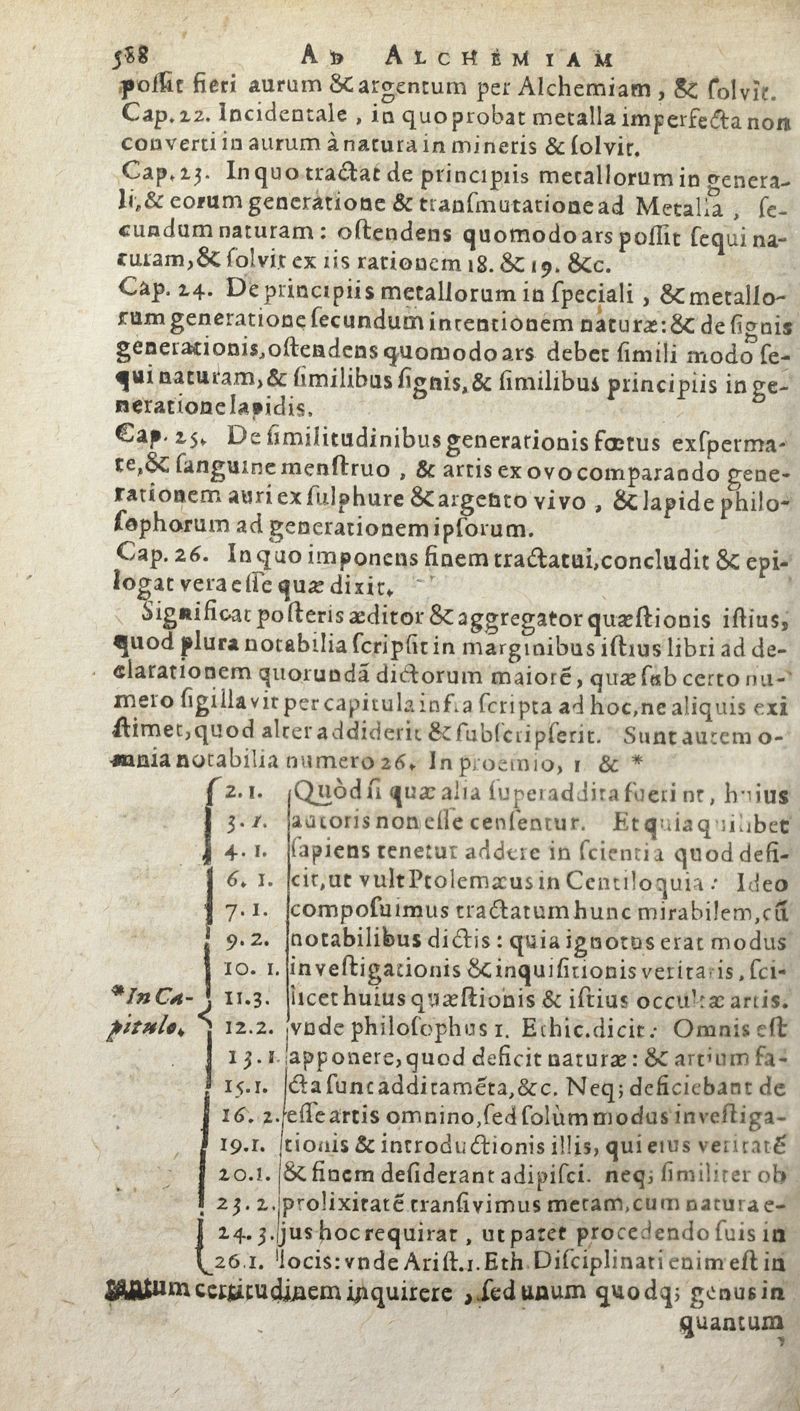 588 AD ALCHEMIAM
possit fieri aurum & argentum per Alchemiam, & solvit.
Cap. 22. Incidentale, in quo probat metalla imperfecta non
converti in aurum à natura in mineris & solvit.
Cap. 23. In quo tractat de principiis metallorum in genera-
li, & eorum generatione & transmutatione ad Metalla, se-
cundum naturam: ostendens quomodo ars possit sequi na-
turam, & solvit ex iis rationem 18. & 19. &c.
Cap. 24. De principiis metallorum in speciali, & metallo-
rum generatione secundum intentionem naturæ: & de signis
generationis, ostendens quomodo ars debet simili modo se-
qui naturam, & similibus signis, & similibus principiis in ge-
neratione lapidis.
Cap. 25. De similitudinibus generationis fœtus ex sperma-
te, & sanguine menstruo, & artis ex ovo comparando gene-
rationem auri ex sulphure & argento vivo, & lapide philo-
sophorum ad generationem ipsorum.
Cap. 26. In quo imponens finem tractatui, concludit & epi-
logat vera esse quæ dixit.
Significat posteris æditor & aggregator quæstionis istius,
quod plura notabilia scripsit in marginibus istius libri ad de-
clarationem quorundã dictorum maiorē, quæ sub certo nu-
mero sigillavit per capitula infra scripta ad hoc, ne aliquis exi
stimet, quod alter addiderit & subscripserit. Sunt autem o-
mnia notabilia numero 26. In proemio, 1 & *
2. 1. Quòd si quæ alia superaddita fuerint, huius
3. 1. autoris non esse censentur. Et quia quilibet
4. 1. sapiens tenetur addere in scientia quod defi-
6. 1. cit, ut vult Ptolemæus in Centiloquia: Ideo
7. 1. composuimus tractatum hunc mirabilem, cũ
9. 2. notabilibus dictis: quia ignotus erat modus
10. 1. investigationis & inquisitionis veritatis, sci-
*In Ca- 11. 3. licet huius quæstionis & istius occultæ artis.
pitulo. 12. 2. vnde philosophus 1. Ethic. dicit: Omnis est
13. 1 apponere, quod deficit naturæ: & artium fa-
15. 1. cta sunt additamēta, &c. Neq; deficiebant de
16. 2. esse artis omnino, sed solùm modus investiga-
19. 1. tionis & introductionis illis, qui eius veritatē
20. 1. & finem desiderant adipisci. neq; similiter ob
23. 2. prolixitatē transivimus metam, cum natura e-
24. 3. jus hoc requirat, ut patet procedendo suis in
26. 1. locis: vnde Arist. 1. Eth. Disciplinati enim est in
tantum certitudinem inquirere, sed unum quodq; genus in
quantum